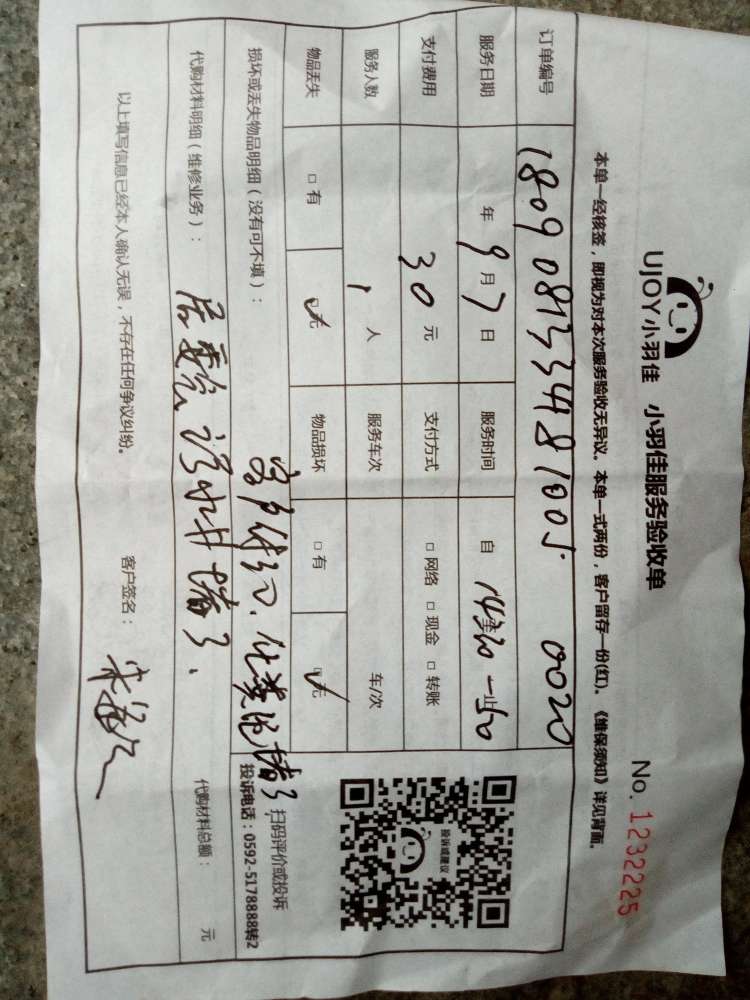 UJOY小羽佳 小羽佳服务验收单
No. 1232225
本单一经核签，即视为对本次服务验收无异议。本单一式两份，客户留存一份(红)。《维保须知》详见背面。
订单编号 180908133481005. 0020
服务日期 年 9 月 7 日 服务时间 自
支付费用 30 元 支付方式 □ 网络 □ 现金 □ 转账
服务人数 1 人 服务车次 车/次
物品丢失 □ 有 □ 无 物品损坏 □ 有 □ 无
投诉或建议
扫码评价或投诉
投诉电话：0592-5178888转2
损坏或丢失物品明细（没有可不填）：
化粪池堵了
代购材料明细（维修业务）： 居委会 污水井堵了. 代购材料总额： 元
以上填写信息已经本人确认无误，不存在任何争议纠纷。 客户签名：